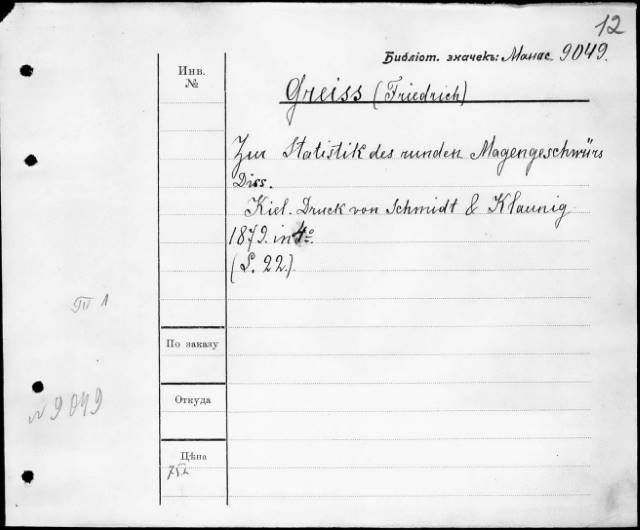 12
Библіот. значекъ: Манас 9049.
Инв.
№
Greiss (Friedrich)
Zur Statistik des runden Magengeschwürs
Diss.
Kiel. Druck von Schmidt & Klaunig
1879. in 4°.
(S. 22.)
По заказу
Откуда
№ 9049
Цѣна